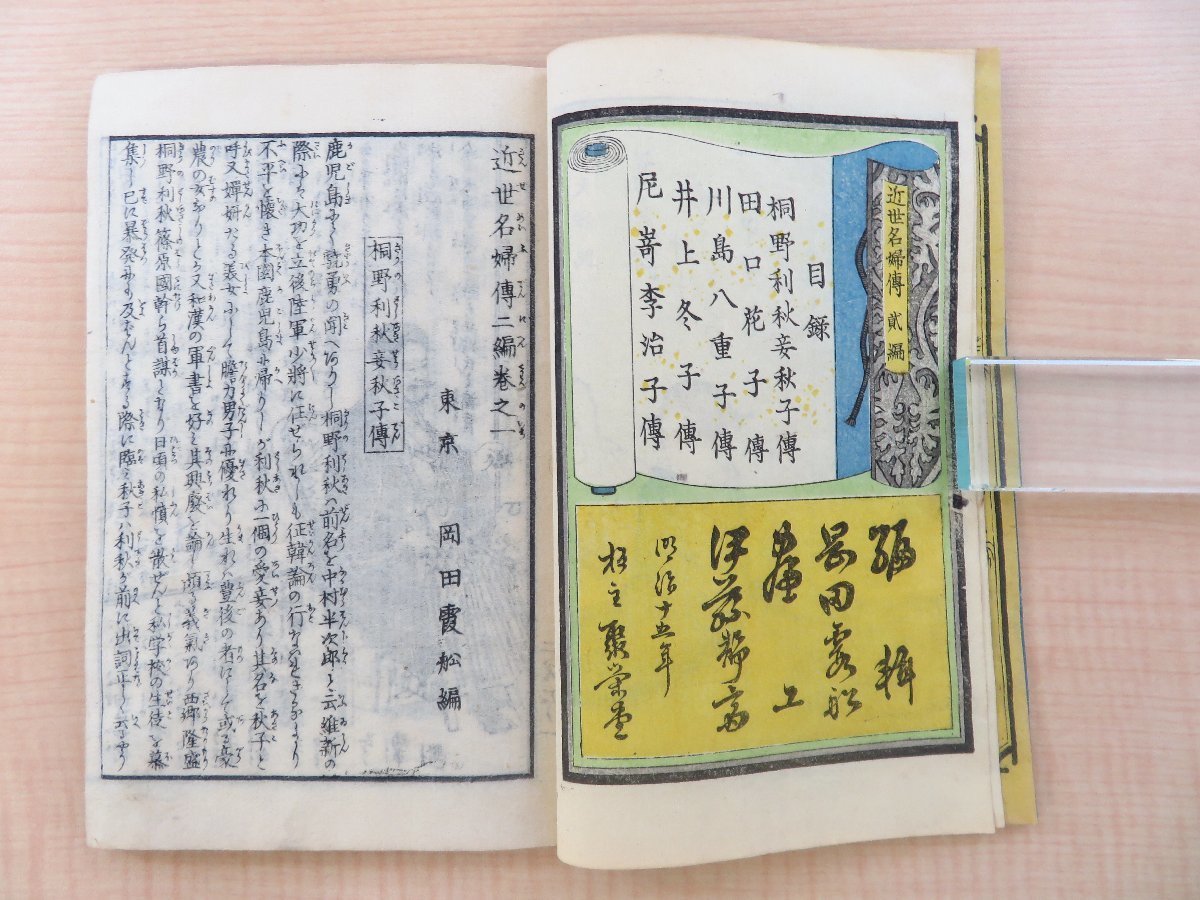 近世名婦傳 貳編
目録
桐野利秋妾秋子傳
田口花子傳
川島八重子傳
井上冬子傳
尼嵜李治子傳
編輯
岡田霞舩
畫工
伊藤静斎
明治十五年
板主聚栄堂
近世名婦傳二編巻之一
東京 岡田霞舩編
桐野利秋妾秋子傳
鹿児島にて驍勇の聞へありし桐野利秋の前名を中村半次郎と云維新の
際にハ大功を立後陸軍少将に任せられしも征韓論の行なはれざるより
不平を懐き本国鹿児島に帰りしが利秋に一個の愛妾あり其名を秋子と
呼又婢妍たる美女にして膽力男子に優れり生れハ豊後の者にして或る豪
農の女なりとか又和漢の軍書を好ミ其興廢を論し頗る義氣あり西郷隆盛
桐野利秋篠原國幹ら首謀となり日頃の私憤を散ぜんと私学校の生徒を募
集し已に暴発にも及ばんとする際に臨ミ秋子ハ利秋が前に出詞正しく云やう